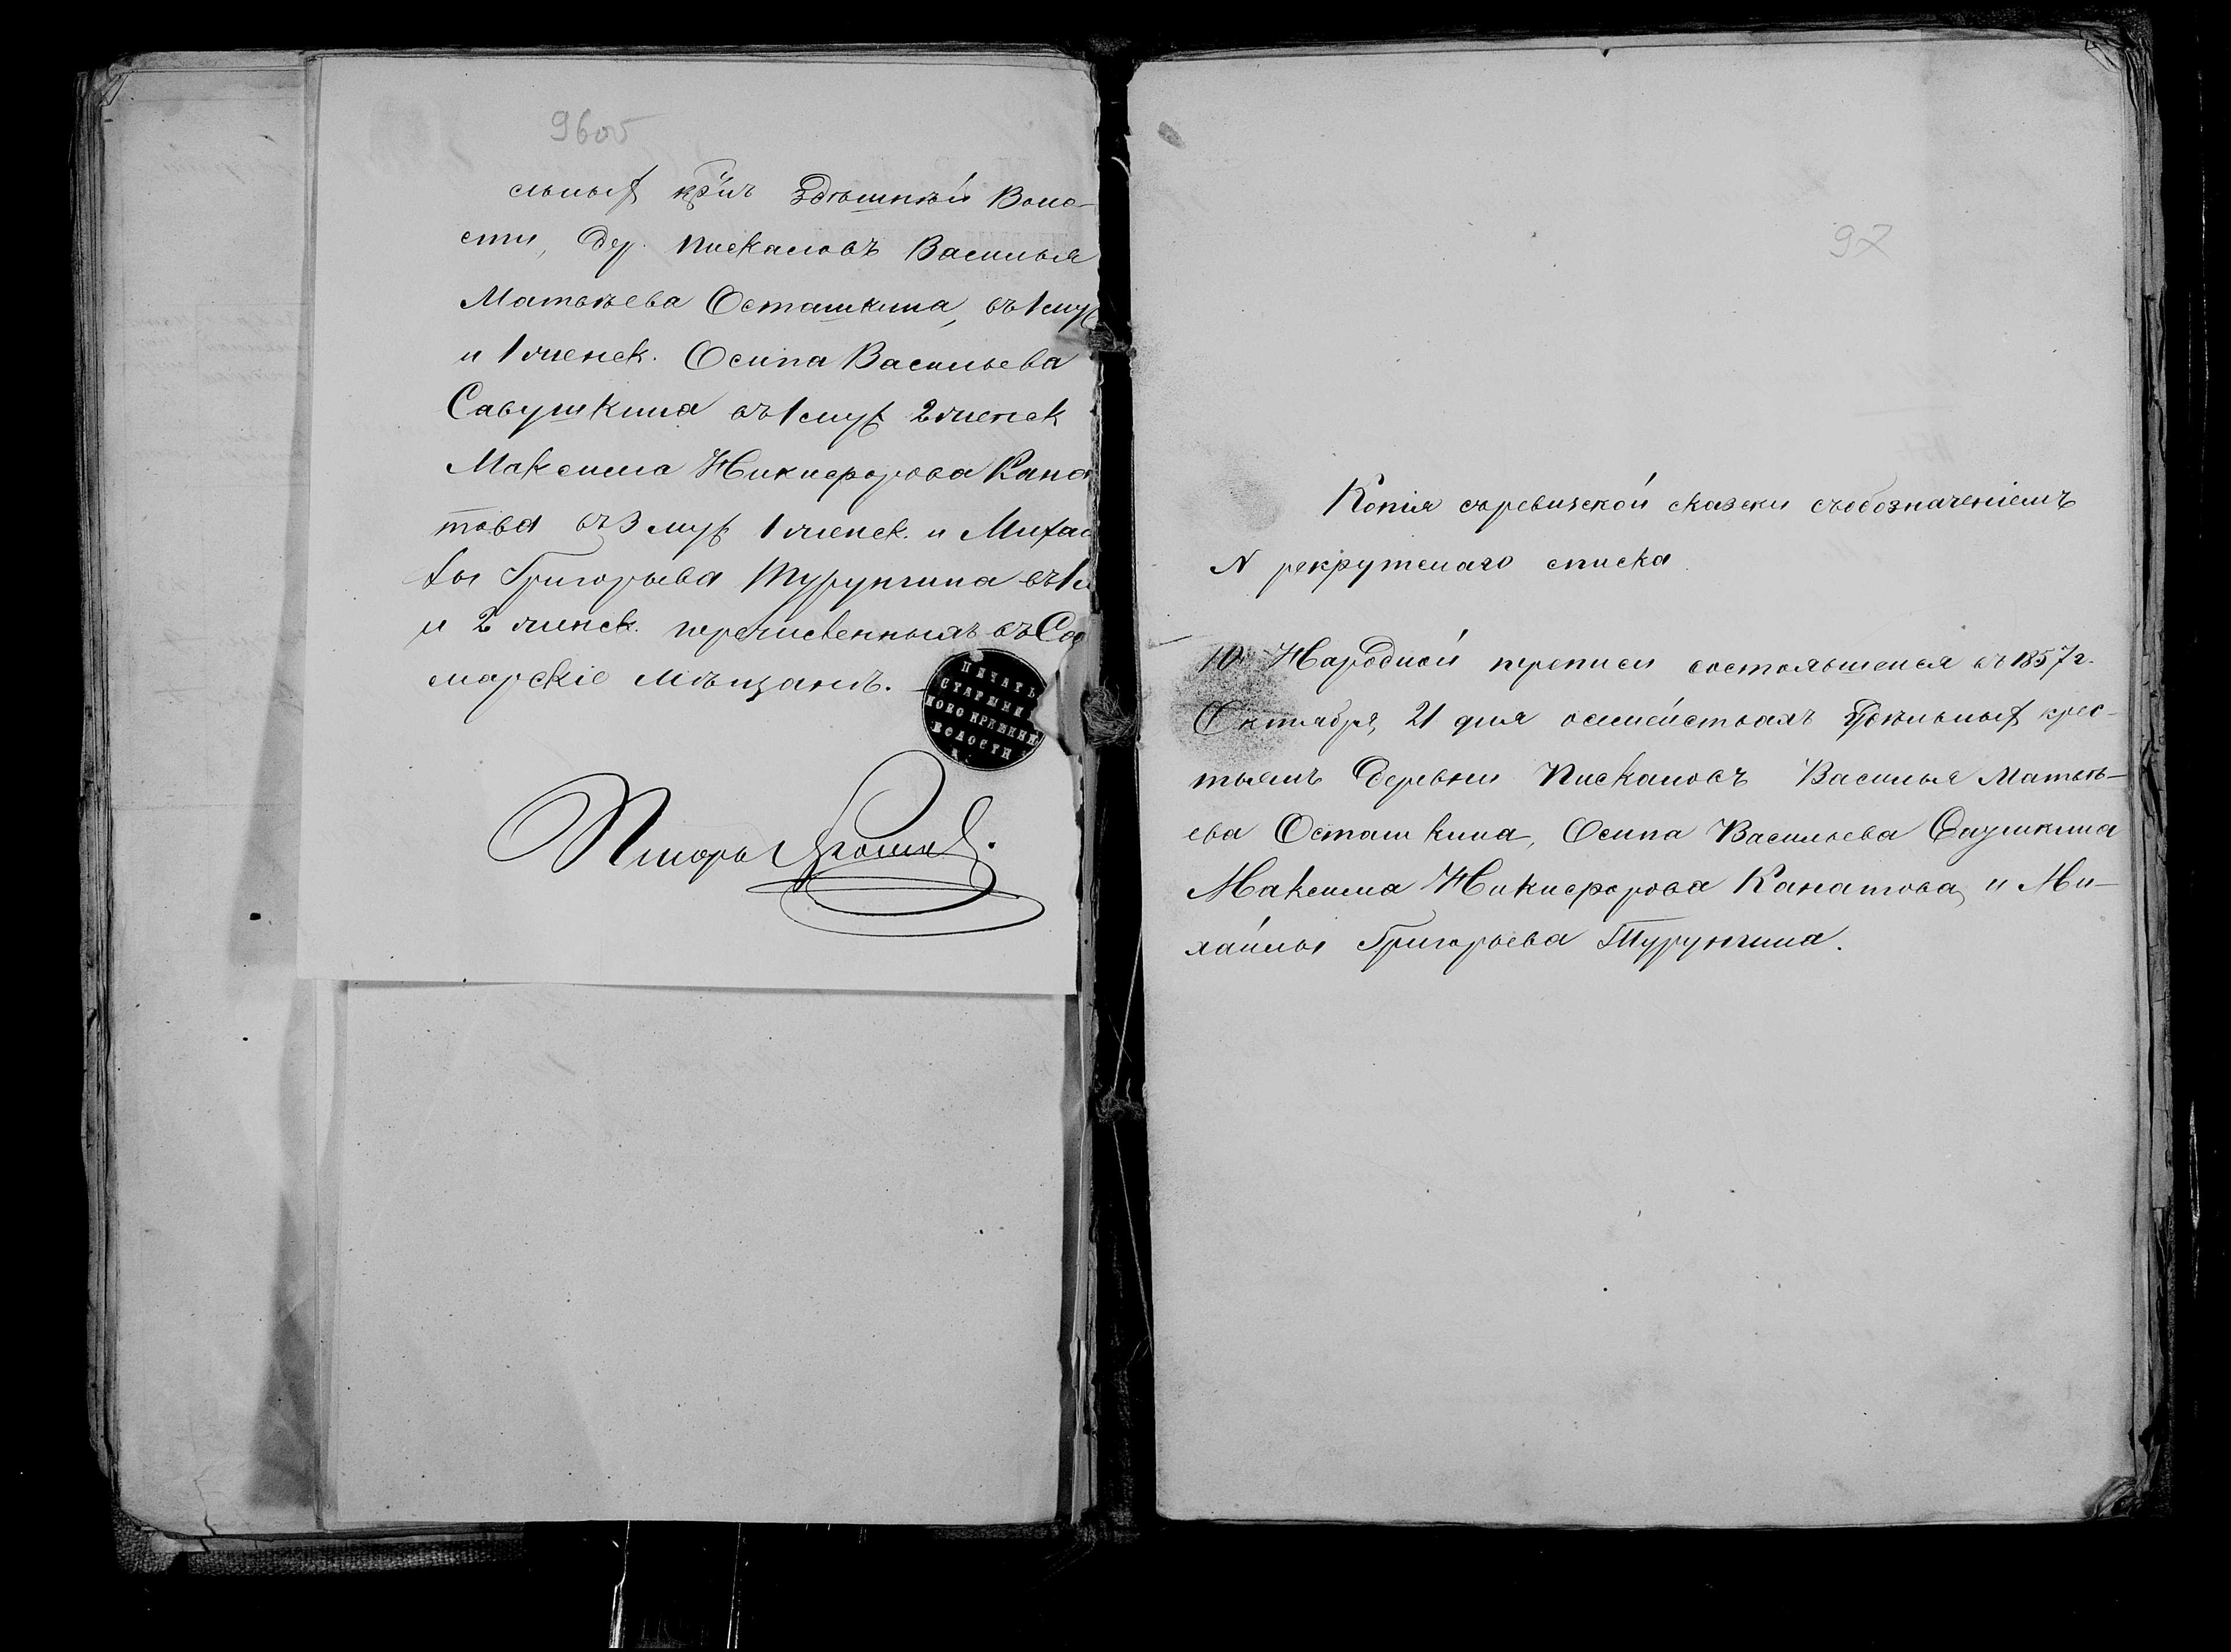 96об
сльныхъ кр̃нъ Здѣшнѣй Воло-
сти, Дер. Пискаловъ Василья
Матвѣева Осташкина, въ 1 муж
и 1 женск. Осипа Васильева
Савушкина въ 1 муж 2 женск
Максима Никифорова Кана
това въ 3 муж 1 женск. и Михай
лы Григорьева Турунгина въ 1
и 2 женск. перечисленныхъ въ Са
марскіе мѣщане.
ПЕЧАТЬ
СТАРШИНЫ
НОВО КРЯЖИНС
ВОЛОСТИ
Писарь
97
Копія съ ревизской сказски съ обозначеніемъ
N рекрутскаго списка
10й Народной переписи состоявшейся въ 1857 г.
Октября, 21 дня о семействахъ Удѣльныхъ крес-
тьянъ Деревни Пискаловъ Василья Матвѣ-
ева Осташкина, Осипа Васильева Саушкина
Максима Никифорова Канатова, и Ми-
хайлы Григорьева Турунгина.